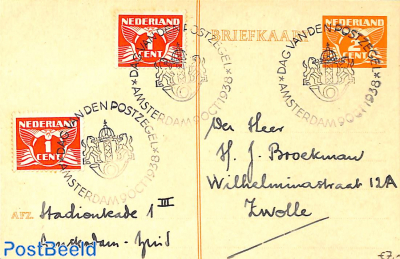 NEDERLAND
1
CENT
BRIEFKAART
NEDERLAND
2
CENT
*DAG VAN DEN POSTZEGEL*
AMSTERDAM 9 OCT 1938
*DAG VAN DEN POSTZEGEL*
AMSTERDAM 9 OCT 1938
NEDERLAND
1
CENT
*DAG VAN DEN POSTZEGEL*
AMSTERDAM 9 OCT 1938
Den Heer
H. J. Broekman
Wilhelminastraat 12A
Zwolle
AFZ. Stadionkade 1 III
Amsterdam-Zuid
€7,-
PostBeeld